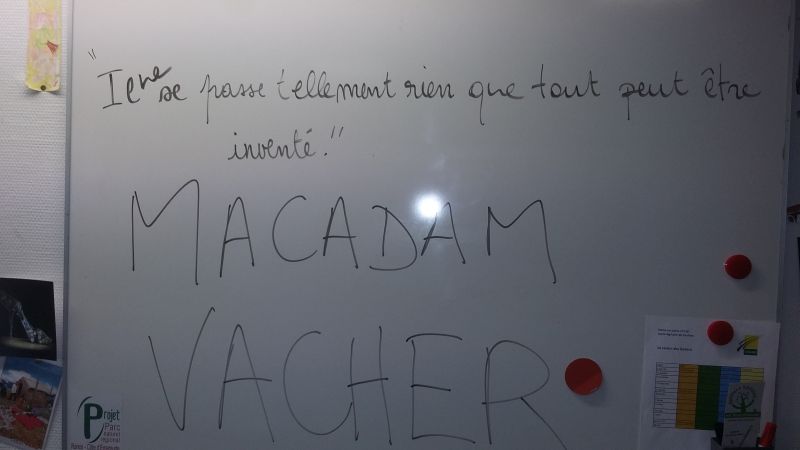 "Il ne se passe tellement rien que tout peut être
inventé."
MACADAM
VACHER
Projet
Parc
naturel
régional